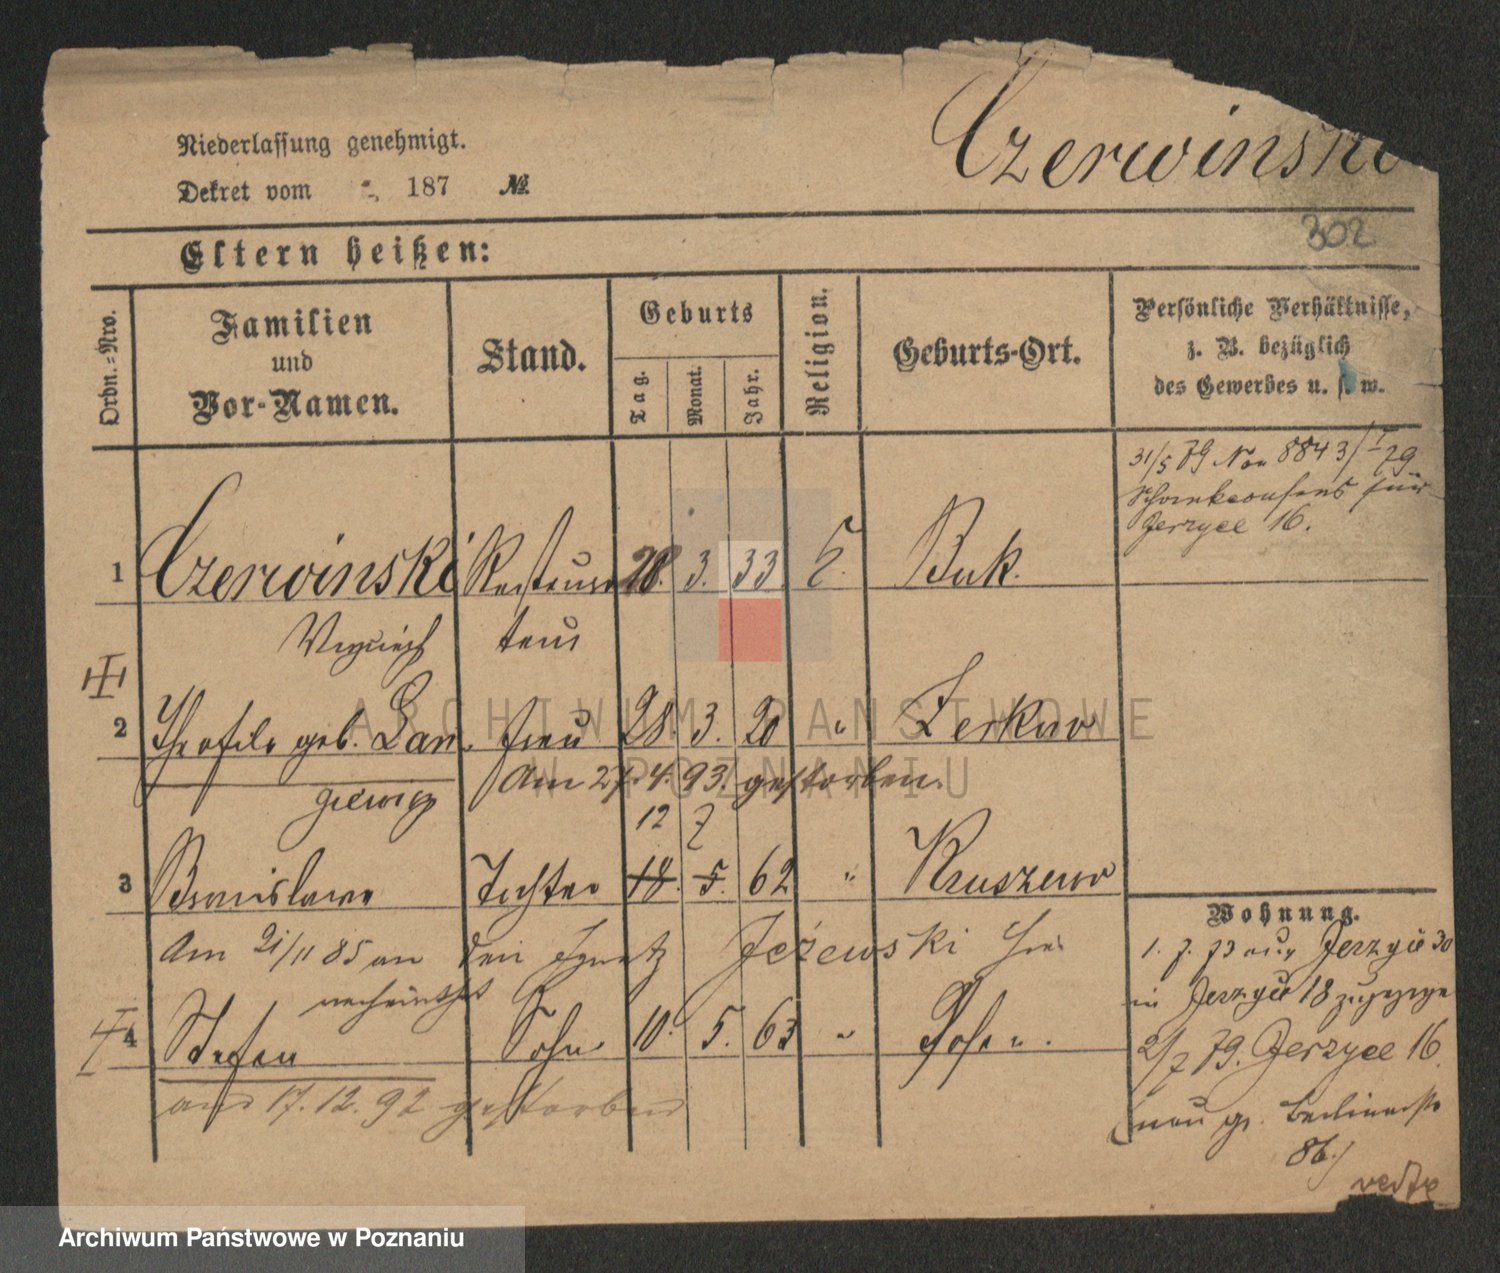 Czerwinski
Niederlassung genehmigt.
Dekret vom 187 №.
302
Eltern heißen:
Ordn.-Nro.
Familien
und
Vor-Namen.
Stand.
Geburts
Tag. Monat. Jahr.
Religion.
Geburts-Ort.
Persönliche Verhältnisse,
z. B. bezüglich
des Gewerbes u. s. w.
31/5 79 8843/I 79
Schankconsens für
Jerzyce 16.
1 Czerwinski Restaura 28. 3. 33 Buk.
teur
2 geb. Lan Frau 28. 3. 20 " Zerkow
giewicz
Am 27.4.93. gestorben.
12 7
3 Bronislawa Tochter 18. 5. 62 " Kruszewo
Am 21/11 85 an den Ignatz Jeżewski hier
verheirathet
4 Stefan Sohn 10. 5. 63 " Posen.
am 17.12.92 gestorben
Wohnung.
1. 7. 73 aus Jerzyce 30
in Jerzyce 18 zugezogen
2/7 79. Jerzyce 16.
(neu gr. Berlinerstr
86.)
verte
ARCHIWUM PAŃSTWOWE
W POZNANIU
Archiwum Państwowe w Poznaniu